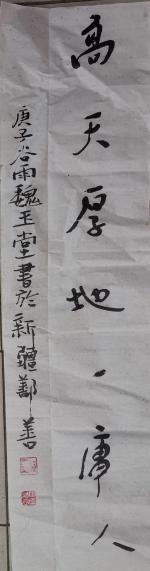 高天厚地一庸人
庚子谷雨魏玉堂書於新疆鄯善